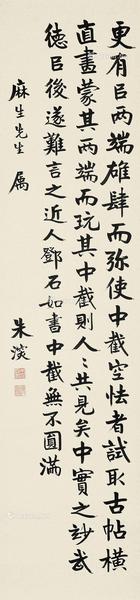 更有臣两端雄肆而弥使中截空怯者試取古帖橫
直畫蒙其两端而玩其中截則人人共見矣中實之妙武
德臣後遂難言之近人鄧石如書中截無不圓滿
麻生先生 属
朱淡